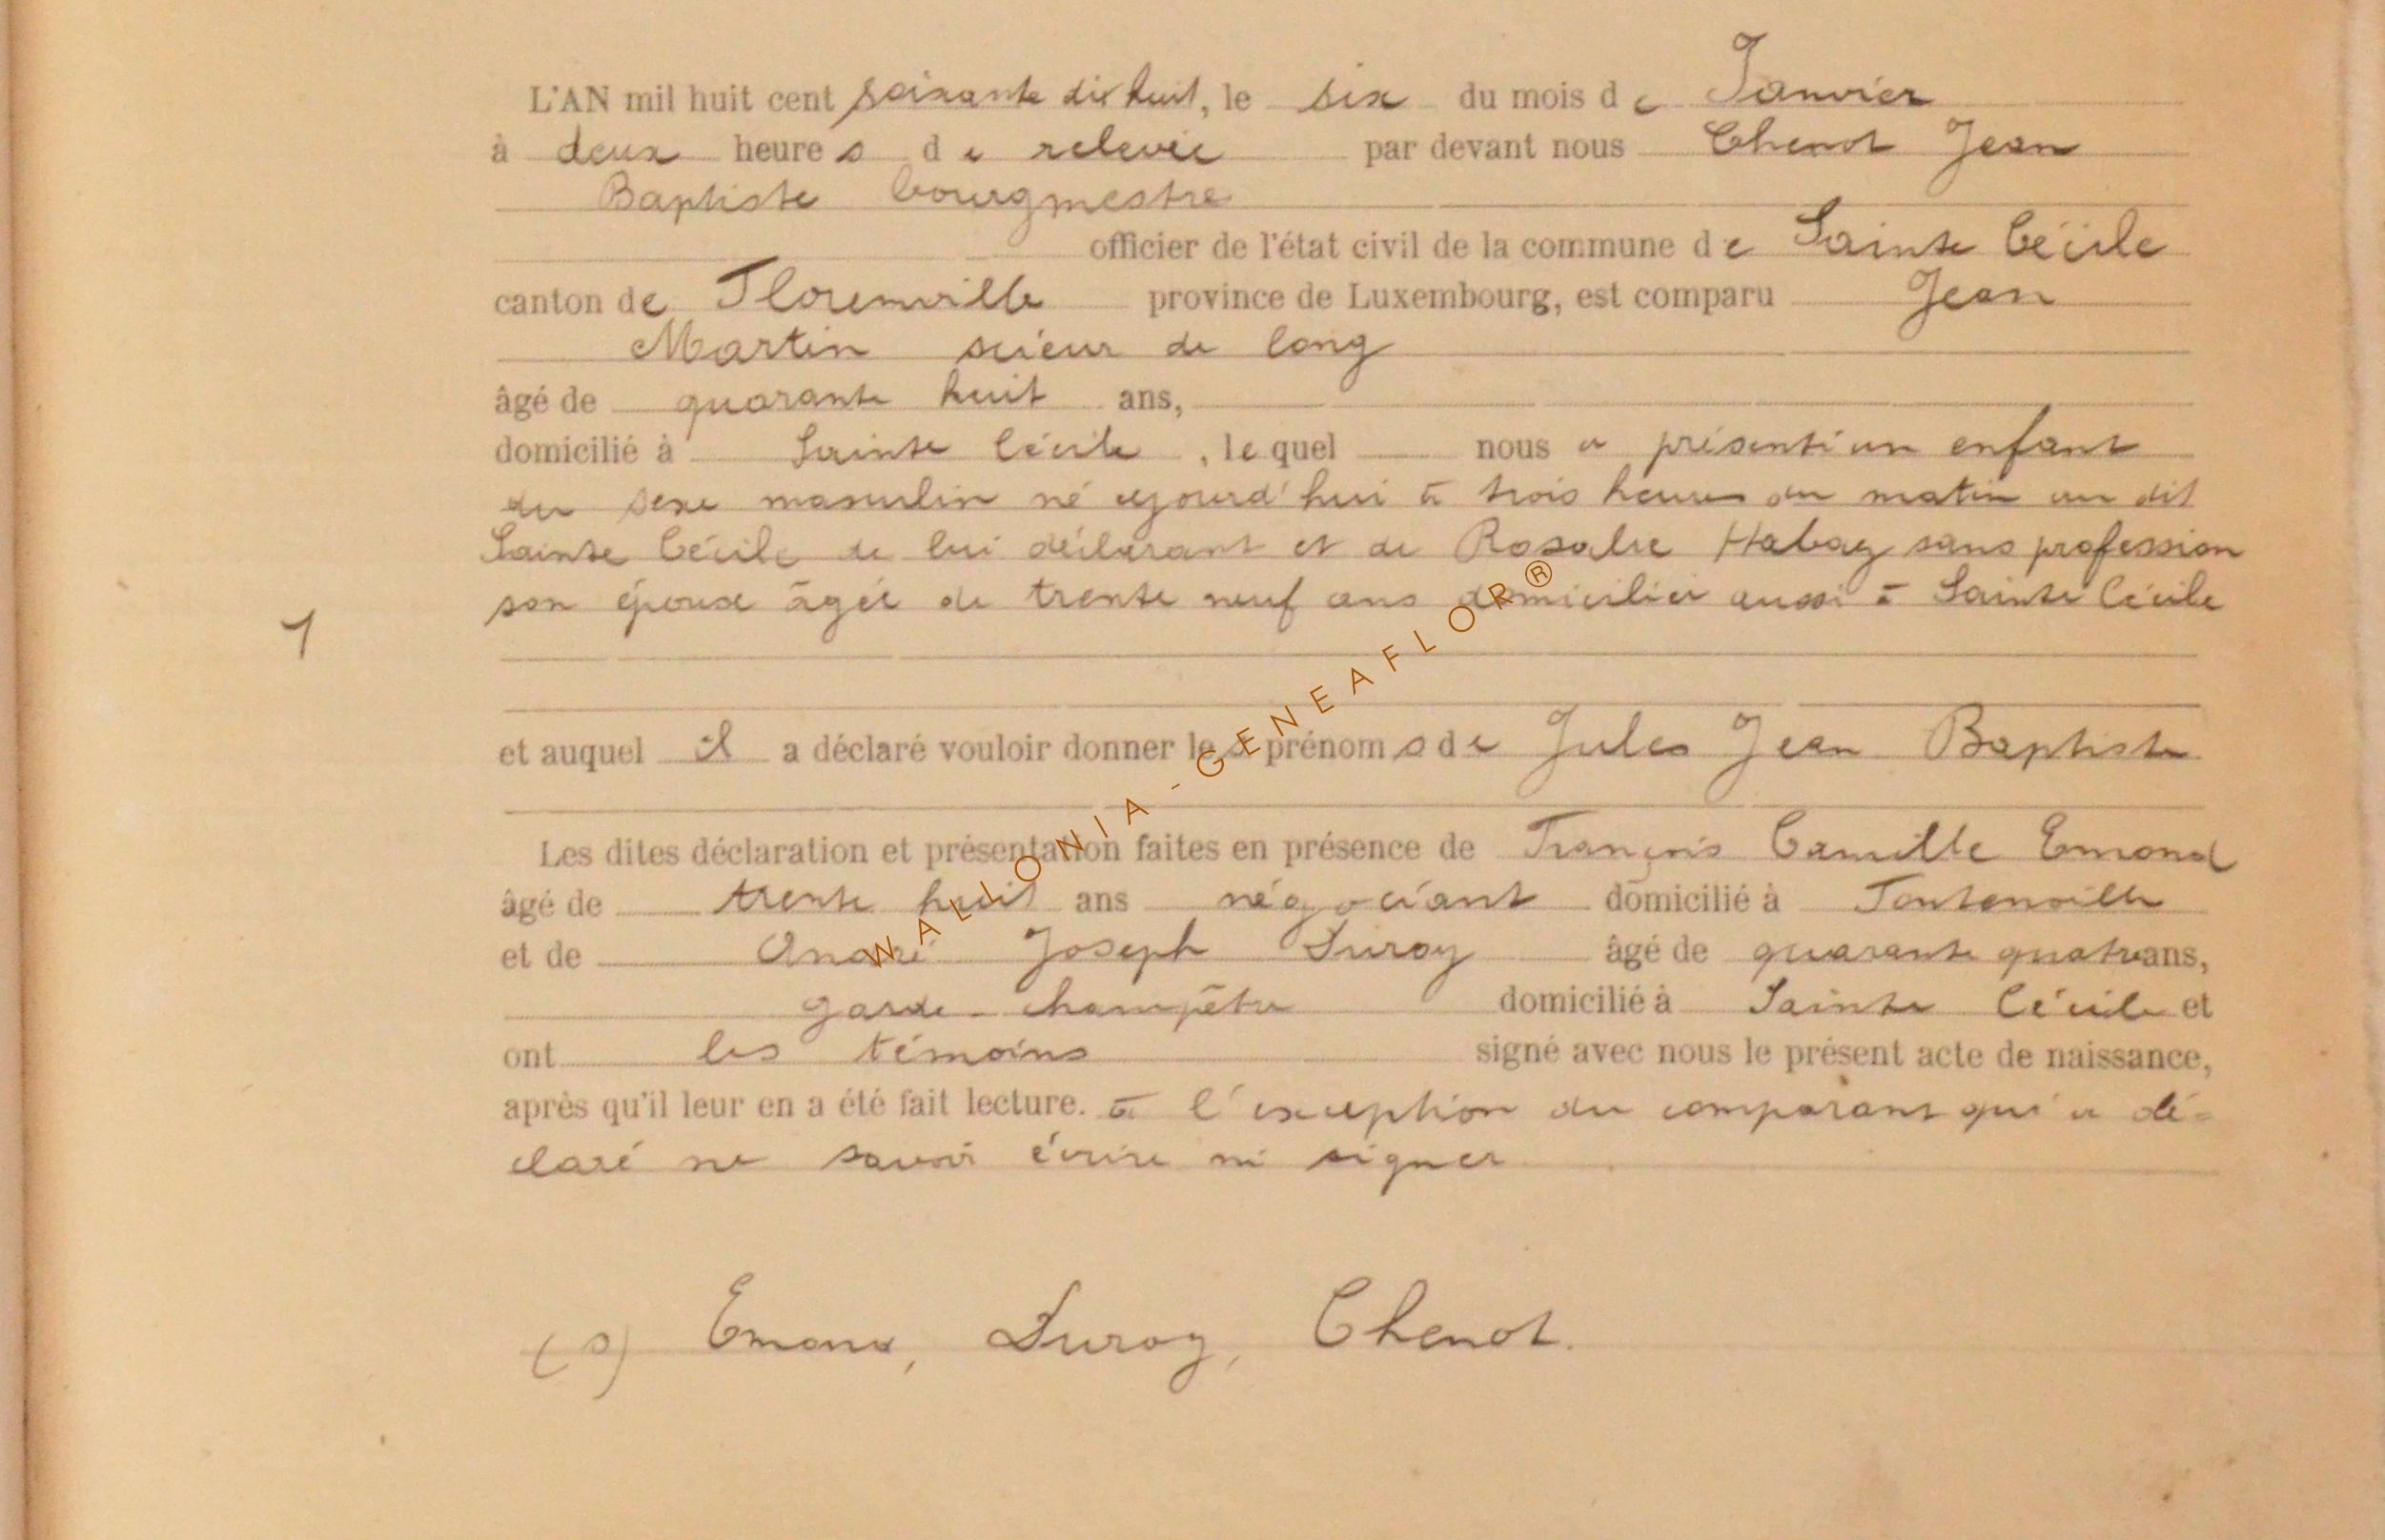 L'AN mil huit cent soixante dix huit, le six du mois de Janvier
à deux heures de relevée par devant nous Chenot Jean
Baptiste bourgmestre
officier de l'état civil de la commune de Sainte Cécile
canton de Florenville province de Luxembourg, est comparu Jean
Martin scieur de long
âgé de quarante huit ans,
domicilié à Sainte Cécile, lequel nous a présenté un enfant
du sexe masculin né aujourd'hui à trois heures du matin au dit
Sainte Cécile de lui déclarant et de Rosalie Habay sans profession
son épouse âgée de trente neuf ans domiciliée aussi à Sainte Cécile
1
et auquel il a déclaré vouloir donner les prénoms de Jules Jean Baptiste
Les dites déclaration et présentation faites en présence de François Camille Emond
âgé de trente huit ans négociant domicilié à Fontenoille
et de André Joseph Duroy âgé de quarante quatre ans,
garde-champêtre domicilié à Sainte Cécile et
ont les témoins signé avec nous le présent acte de naissance,
après qu'il leur en a été fait lecture. à l'exception du comparant qui a dé-
claré ne savoir écrire ni signer
(s) Emond, Duroy, Chenot.
WALLONIA-GENEAFLOR®